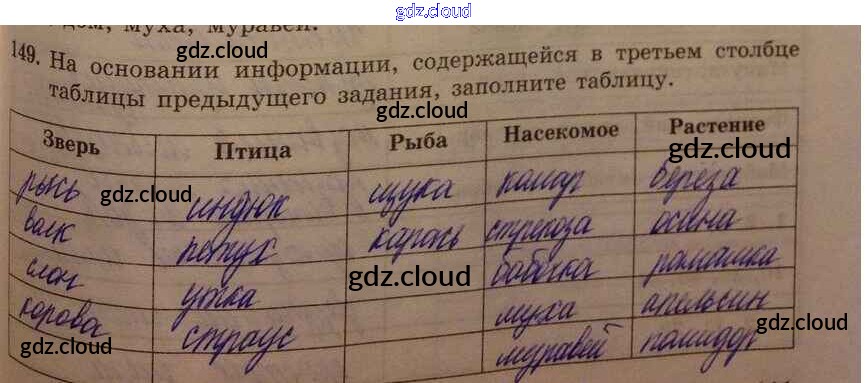 gdz.cloud
дом, муха, муравей.
149. На основании информации, содержащейся в третьем столбце
таблицы предыдущего задания, заполните таблицу.
Зверь Птица Рыба Насекомое Растение
рысь индюк щука комар береза
волк петух карась стрекоза осина
слон утка бабочка ромашка
корова страус муха апельсин
муравей помидор
gdz.cloud
gdz.cloud
gdz.cloud
gdz.cloud
gdz.cloud
gdz.cloud
gdz.cloud